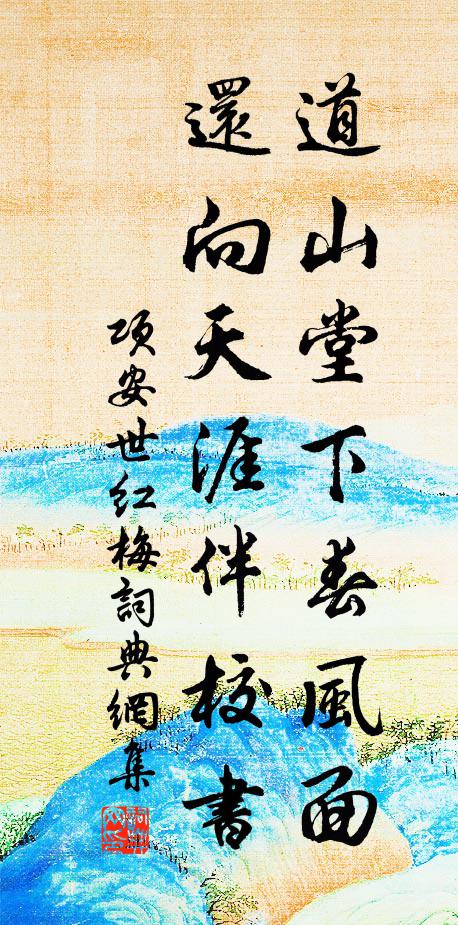 道山堂下春風面
還向天涯伴校書
項安世紅梅詞典網集